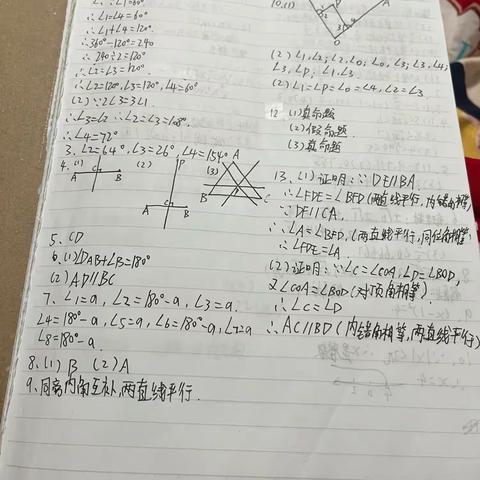 ∴∠1=∠4=60°
∴∠1+∠4=120°
∴360°-120°=240
∴240÷2=120°
∴∠2=∠3=120°
∴∠2=120°,∠3=120°,∠4=60°
(2)∵2∠3=3∠1
∴∠3=∠2 ∴∠2=∠3=108°
∴∠4=72°
3、∠2=64°,∠3=26°,∠4=154°
4、(1) (2) (3)
A B C P A B A B C
5、CD
6、(1)∠DAB+∠B=180°
(2)AD∥BC
7、∠1=a,∠2=180°-a,∠3=a.
∠4=180°-a,∠5=a,∠6=180°-a,∠7=a
∠8=180°-a.
8、(1) B (2) A
9、同旁内角互补,两直线平行.
10、(1)
2 3 4 O A
(2)∠1,∠2;∠2,∠O;∠O,∠3;∠3,∠4;
∠3,∠P;∠1,∠3
(2)∠1=∠P=∠O=∠4,∠2=∠3
12 (1)真命题
(2)假命题.
(3)真命题
13、(1)证明:∵DE∥BA
∴∠FDE=∠BFD(两直线平行,内错角相等)
∵DE∥CA.
∴∠A=∠BFD,(两直线平行,同位角相等)
∴∠FDE=∠A
(2)证明:∵∠C=∠COA,∠D=∠BOD,
又∠COA=∠BOD(对顶角相等).
∴∠C=∠D
∴AC∥BD(内错角相等,两直线平行)